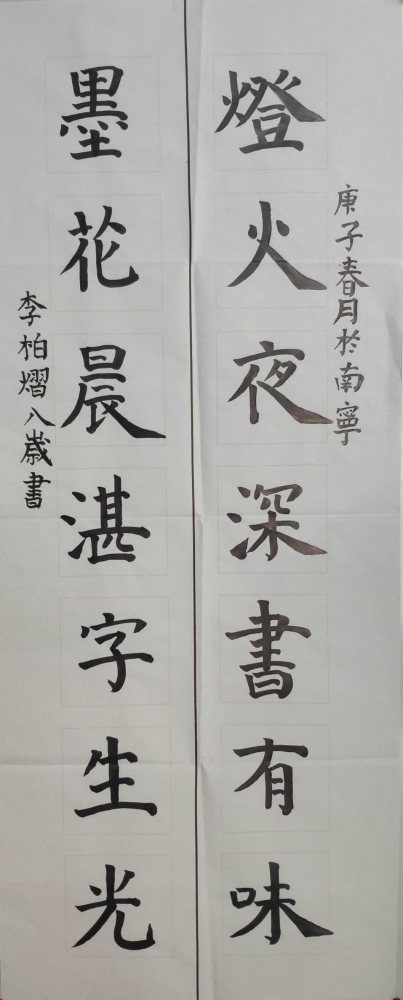 庚子春月於南寧
燈火夜深書有味
墨花晨湛字生光
李柏熠八歲書